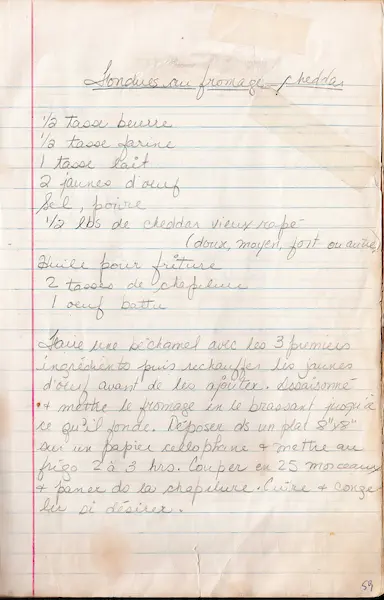 Fondues au fromage cheddar
1/2 tasse beurre
1/2 tasse farine
1 tasse lait
2 jaunes d'oeuf
Sel, poivre
1/2 lbs de cheddar vieux rapé
(doux, moyen, fort ou autre)
Huile pour friture
2 tasses de chapelure
1 oeuf battu
Faire une béchamel avec les 3 premiers
ingrédients puis rechauffer les jaunes
d'oeuf avant de les ajouter.
+ mettre le fromage en le brassant jusqu'à
ce qu'il fonde. Déposer ds un plat 8"x8"
sur un papier cellophane + mettre au
frigo 2 à 3 hrs. Couper en 25 morceaux
+ paner ds la chapelure. Cuire + conge
ler si désirer.
59